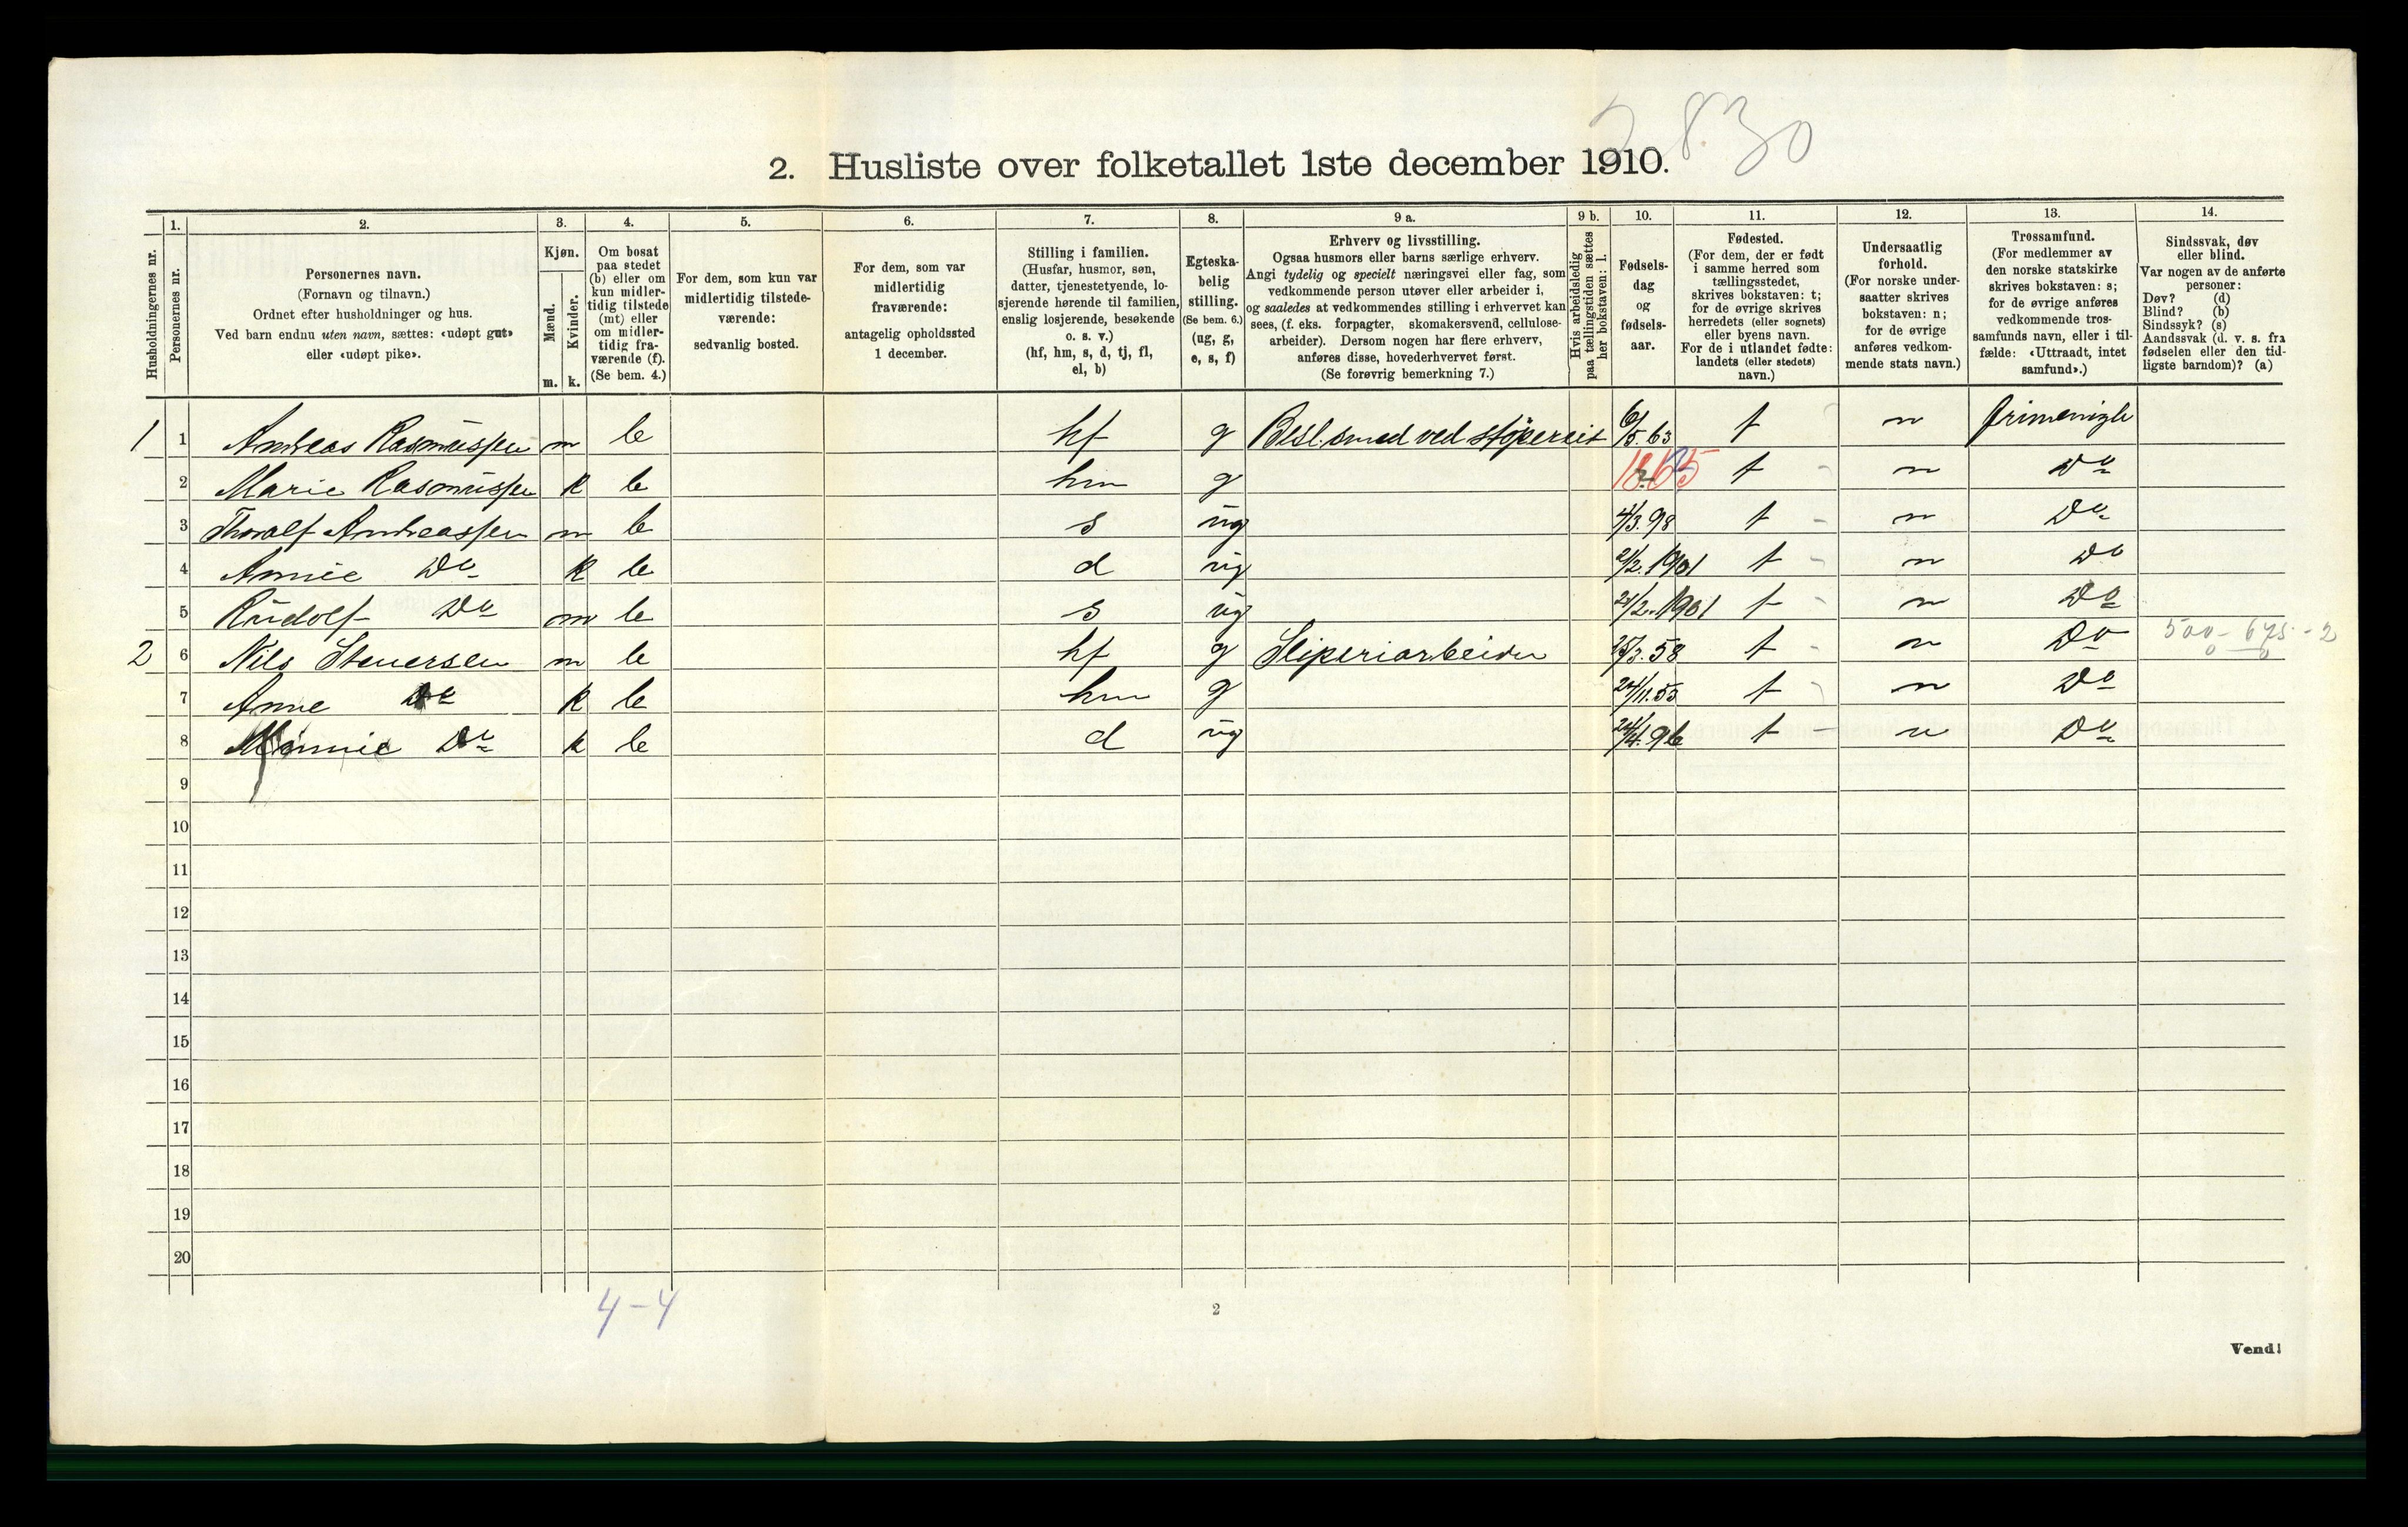 2830
2. Husliste over folketallet 1ste december 1910.
Husholdningernes nr.
1. Personernes nr.
2. Personernes navn.
(Fornavn og tilnavn.)
Ordnet efter husholdninger og hus.
Ved barn endnu uten navn, sættes: «udøpt gut»
eller «udøpt pike».
3. Kjøn.
Mænd. m.
Kvinder. k.
4. Om bosat
paa stedet
(b) eller om
kun midler-
tidig tilstede
(mt) eller
om midler-
tidig fra-
værende (f).
(Se bem. 4.)
5. For dem, som kun var
midlertidig tilstede-
værende:
sedvanlig bosted.
6. For dem, som var
midlertidig
fraværende:
antagelig opholdssted
1 december.
7. Stilling i familien.
(Husfar, husmor, søn,
datter, tjenestetyende, lo-
sjerende hørende til familien,
enslig losjerende, besøkende
o. s. v.)
(hf, hm, s, d, tj, fl,
el, b)
8. Egteska-
belig
stilling.
(Se bem. 6.)
(ug, g,
e, s, f)
9 a. Erhverv og livsstilling.
Ogsaa husmors eller barns særlige erhverv.
Angi tydelig og specielt næringsvei eller fag, som
vedkommende person utøver eller arbeider i,
og saaledes at vedkommendes stilling i erhvervet kan
sees, (f. eks. forpagter, skomakersvend, cellulose-
arbeider). Dersom nogen har flere erhverv,
anføres disse, hovederhvervet først.
(Se forøvrig bemerkning 7.)
9 b. Hvis arbeidsledig
paa tællingstiden sættes
her bokstaven: l.
10. Fødsels-
dag
og
fødsels-
aar.
11. Fødested.
(For dem, der er født
i samme herred som
tællingsstedet,
skrives bokstaven: t;
for de øvrige skrives
herredets (eller sognets)
eller byens navn.
For de i utlandet fødte:
landets (eller stedets)
navn.)
12. Undersaatlig
forhold.
(For norske under-
saatter skrives
bokstaven: n;
for de øvrige
anføres vedkom-
mende stats navn.)
13. Trossamfund.
(For medlemmer av
den norske statskirke
skrives bokstaven: s;
for de øvrige anføres
vedkommende tros-
samfunds navn, eller i til-
fælde: «Uttraadt, intet
samfund».)
14. Sindssvak, døv
eller blind.
Var nogen av de anførte
personer:
Døv? (d)
Blind? (b)
Sindssyk? (s)
Aandssvak (d. v. s. fra
fødselen eller den tid-
ligste barndom)? (a)
1 1 Andreas Rasmussen m b hf g smed ved 6/5.63 t n frimenigh
2 Marie Rasmussen k b hm g 1865 t n Do
3 Thoralf Andreassen m b s ug 4/3.98 t n Do
4 Annie Do k b d ug 21/2.1901 t n Do
5 Rudolf Do m b s ug 21/2.1901 t n Do
2 6 Nils Stenersen m b hf g Sliperiarbeider 3.58 t n Do 500 - 675 - 2
0 0
7 Anne Do k b hm g 24/11.55 t n Do
8 Minnie Do k b d ug 24/4.96 t n Do
9
10
11
12
13
14
15
16
17
18
19
20
4-4
2
Vend!